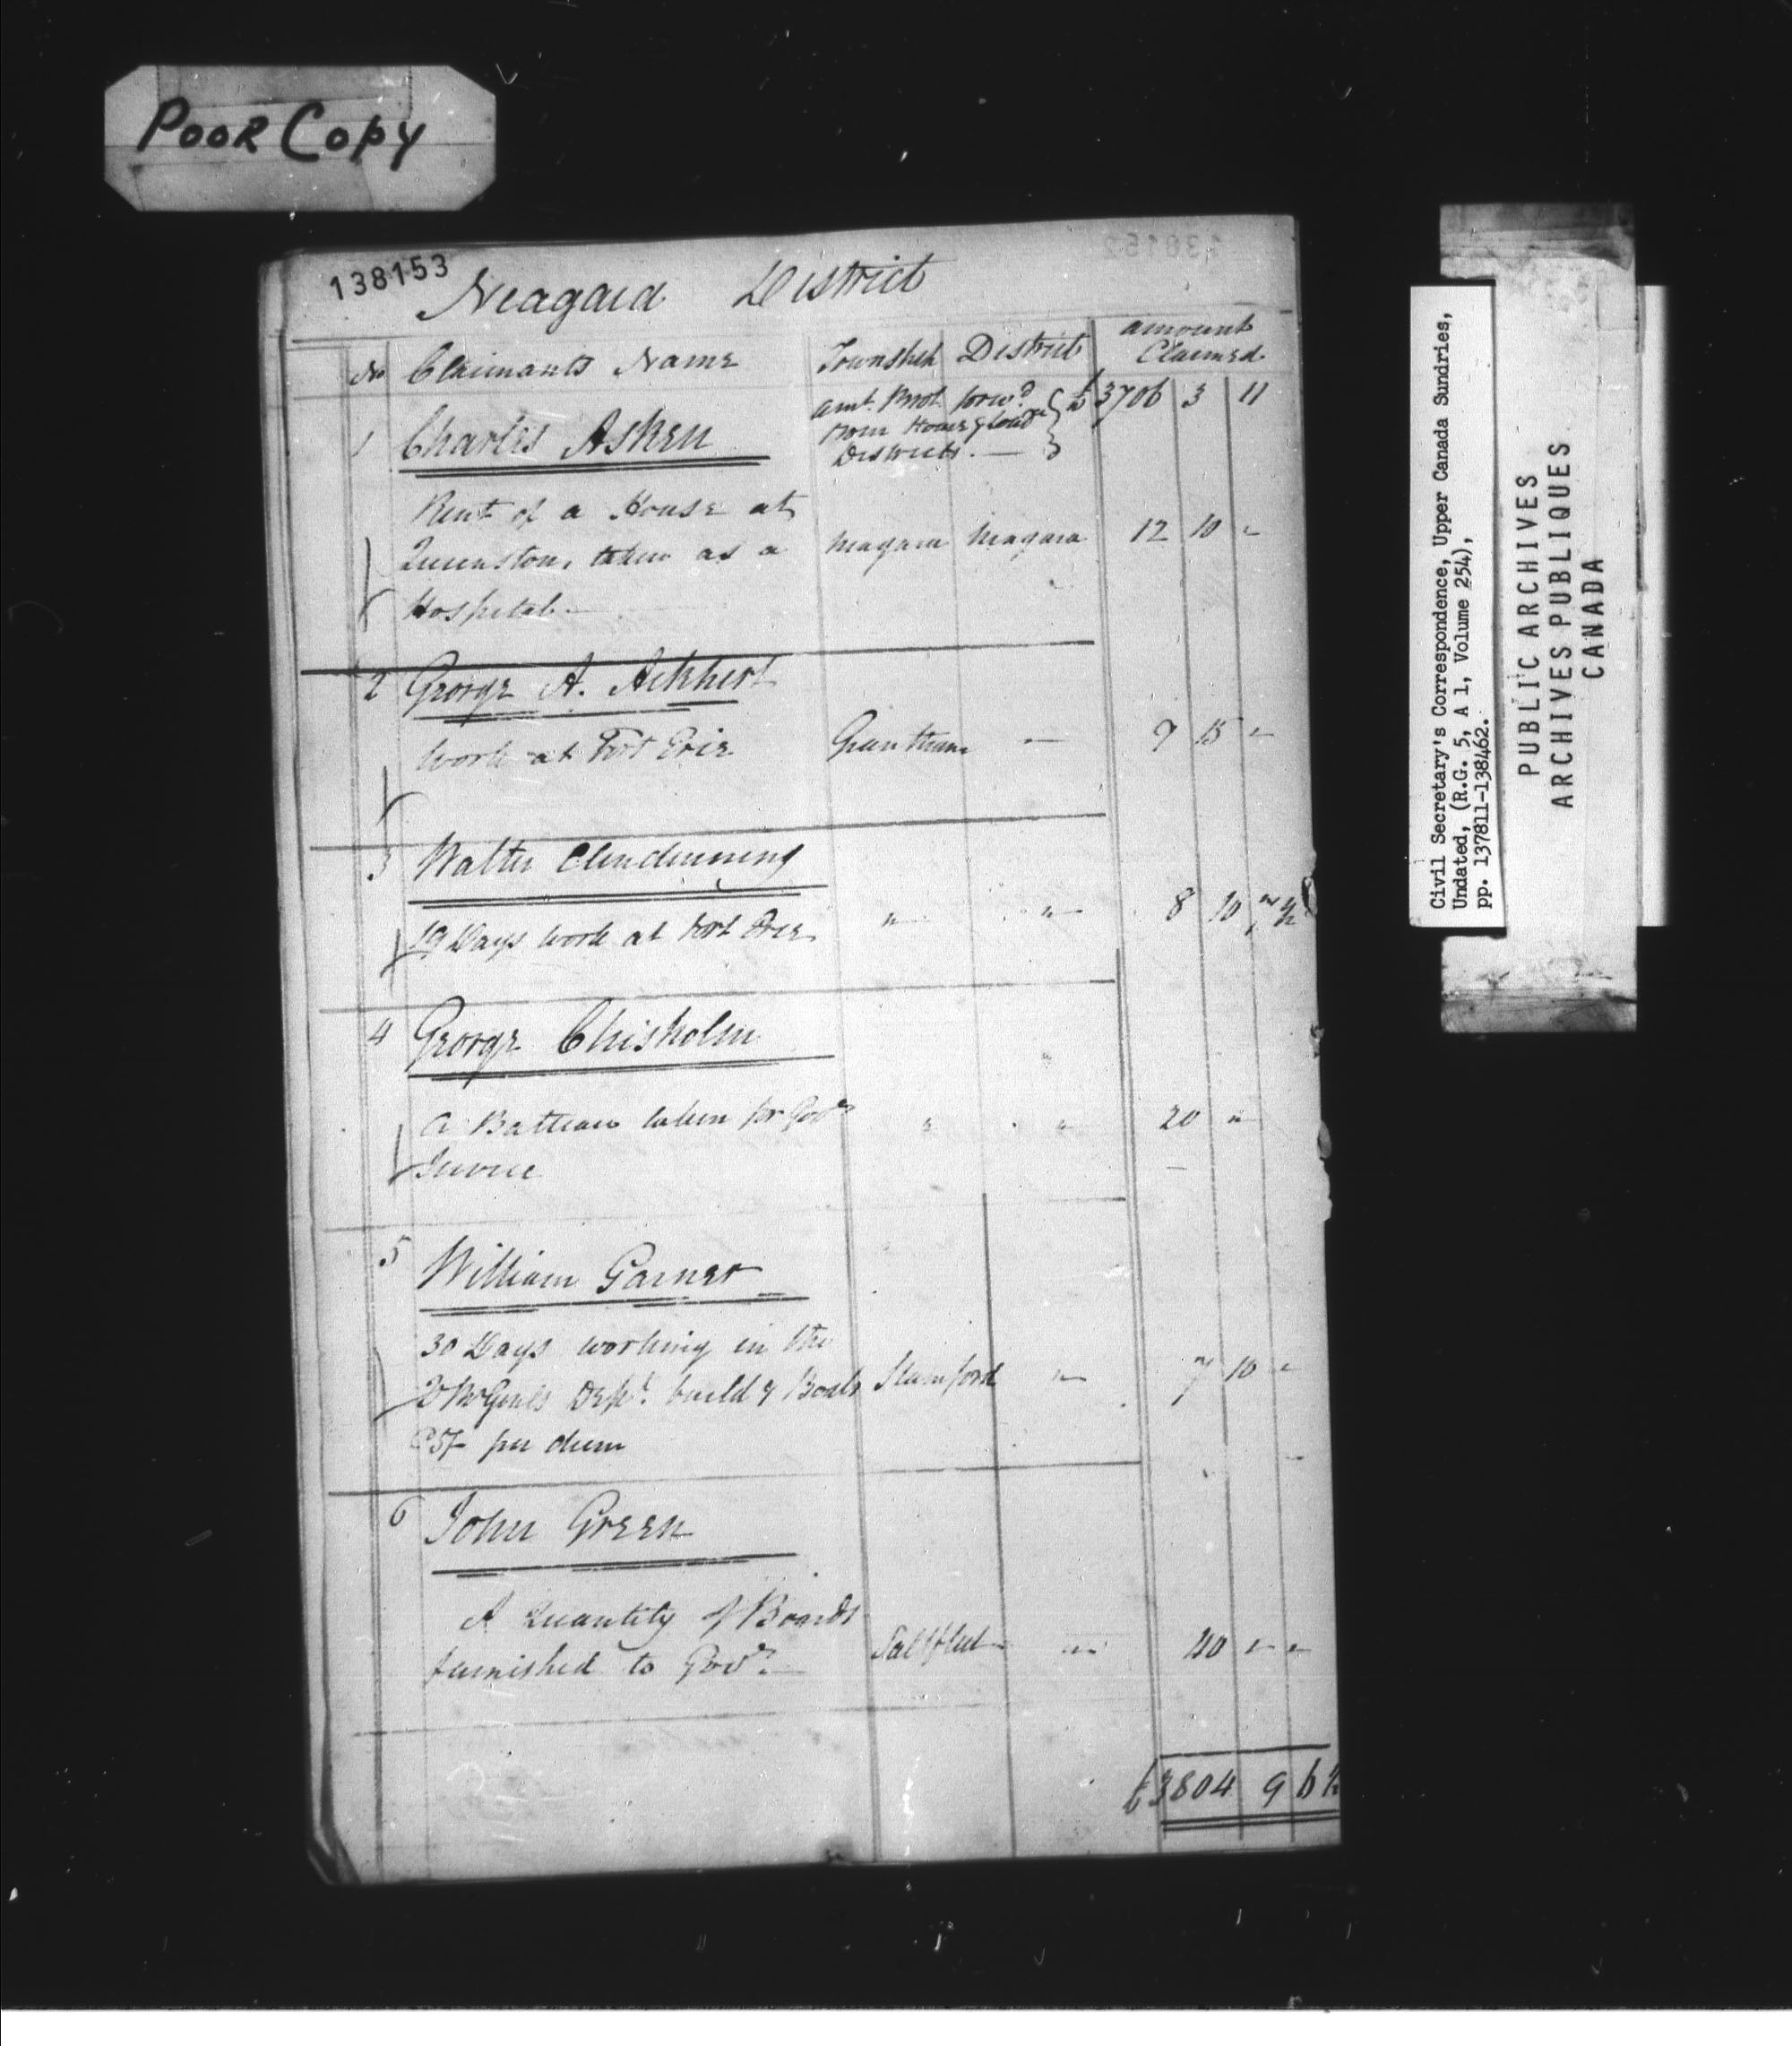 POOR COPY
138153
138152
Niagara District
No Claimants Name Township District amount Claimed
amt. Brot forwd from Home & Londn Districts. — £ 3706 3 11
1 Charles Asken
Rent of a House at
Queenston, taken as a Niagara Niagara 12 10 "
Hospital
2 George A.
Work at Fort Erie Grantham — 9 15 "
3 Walter Clendenning
19 Days work at Fort Erie " " 8 10 7 ½
4 George Chisholm "
A Batteau taken for Govt " " 20 "
Service
5 William Garner
30 Days working in the
Qr Mr Genls Dept. build g Boats Stamford " 7 10 "
@ 5/- per diem
6 John Green
A Quantity of Boards
furnished to Govt. Saltfleet " 40 " "
£3804 9 6 ½
Civil Secretary's Correspondence, Upper Canada Sundries,
Undated, (R.G. 5, A 1, Volume 254),
pp. 137811-138462.
PUBLIC ARCHIVES
ARCHIVES PUBLIQUES
CANADA